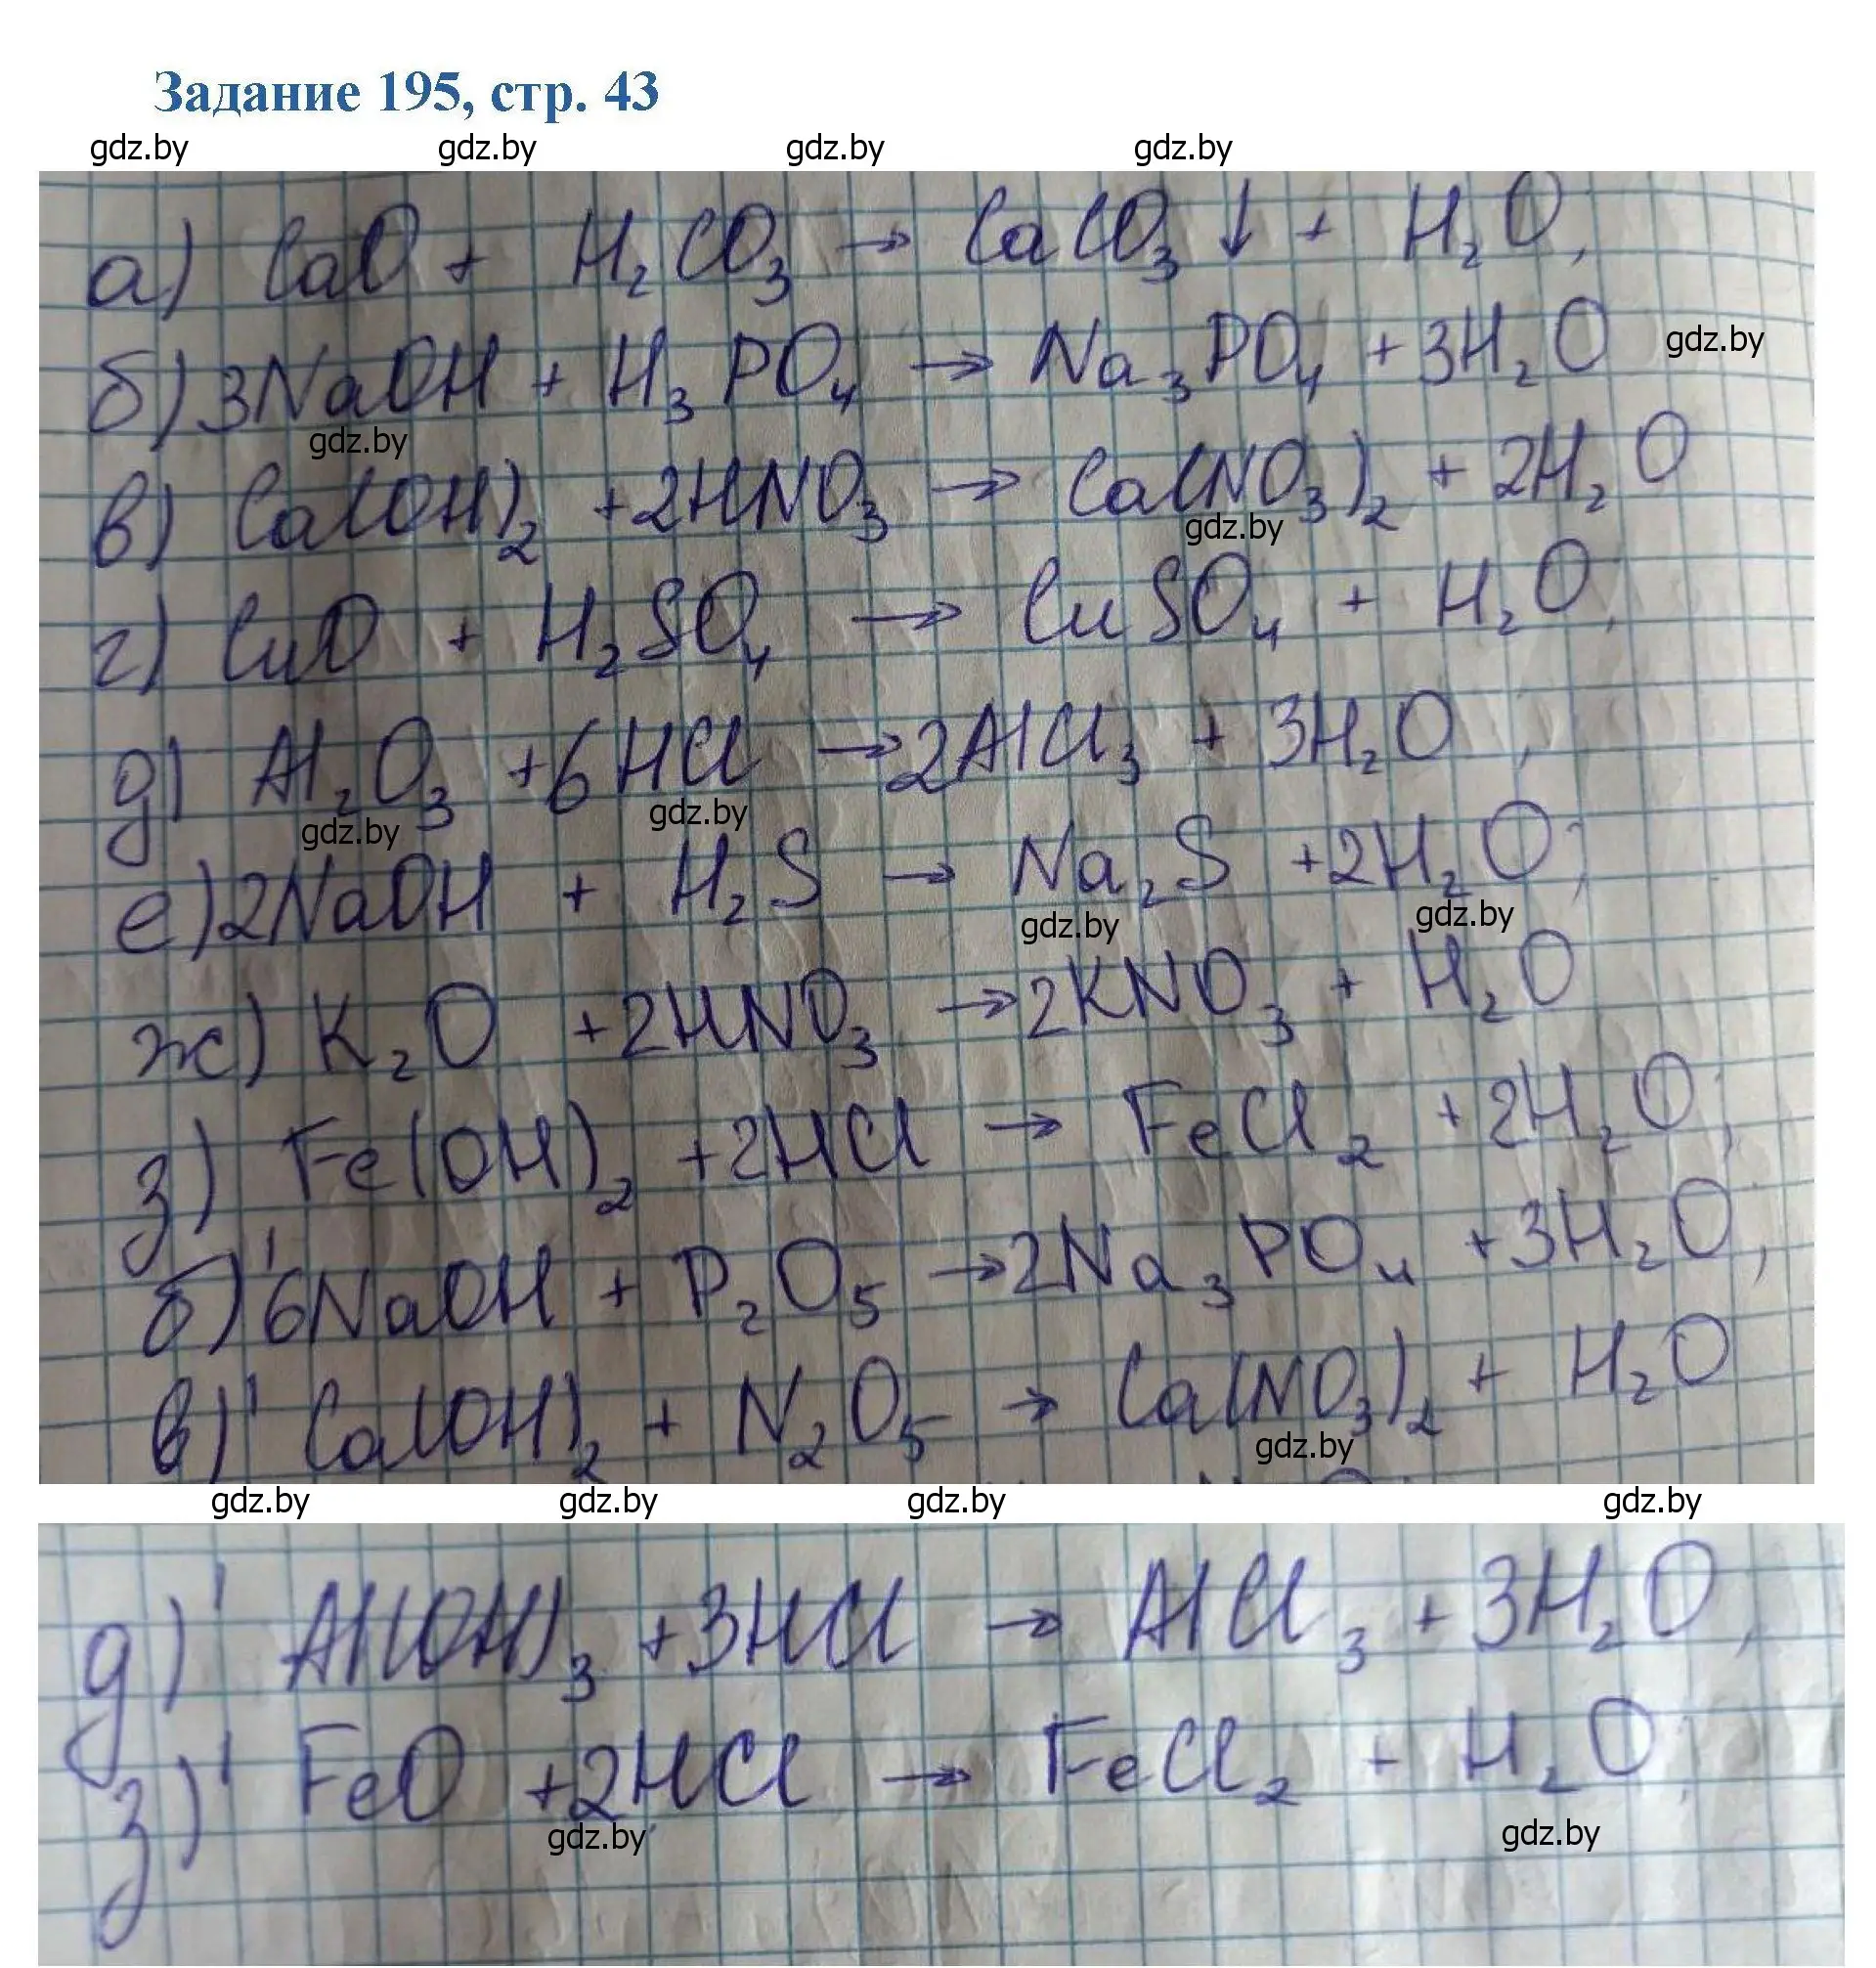 Задание 195, стр. 43
gdz.by gdz.by gdz.by gdz.by
а) CaO + H₂CO₃ → CaCO₃↓ + H₂O;
б) 3NaOH + H₃PO₄ → Na₃PO₄ + 3H₂O gdz.by
gdz.by
в) Ca(OH)₂ + 2HNO₃ → Ca(NO₃)₂ + 2H₂O
gdz.by
г) CuO + H₂SO₄ → CuSO₄ + H₂O;
д) Al₂O₃ + 6HCl → 2AlCl₃ + 3H₂O;
gdz.by gdz.by
е) 2NaOH + H₂S → Na₂S + 2H₂O;
gdz.by gdz.by
ж) K₂O + 2HNO₃ → 2KNO₃ + H₂O
з) Fe(OH)₂ + 2HCl → FeCl₂ + 2H₂O;
б)' 6NaOH + P₂O₅ → 2Na₃PO₄ + 3H₂O;
в)' Ca(OH)₂ + N₂O₅ → Ca(NO₃)₂ + H₂O
gdz.by
gdz.by gdz.by gdz.by gdz.by
д)' Al(OH)₃ + 3HCl → AlCl₃ + 3H₂O;
з)' FeO + 2HCl → FeCl₂ + H₂O;
gdz.by gdz.by